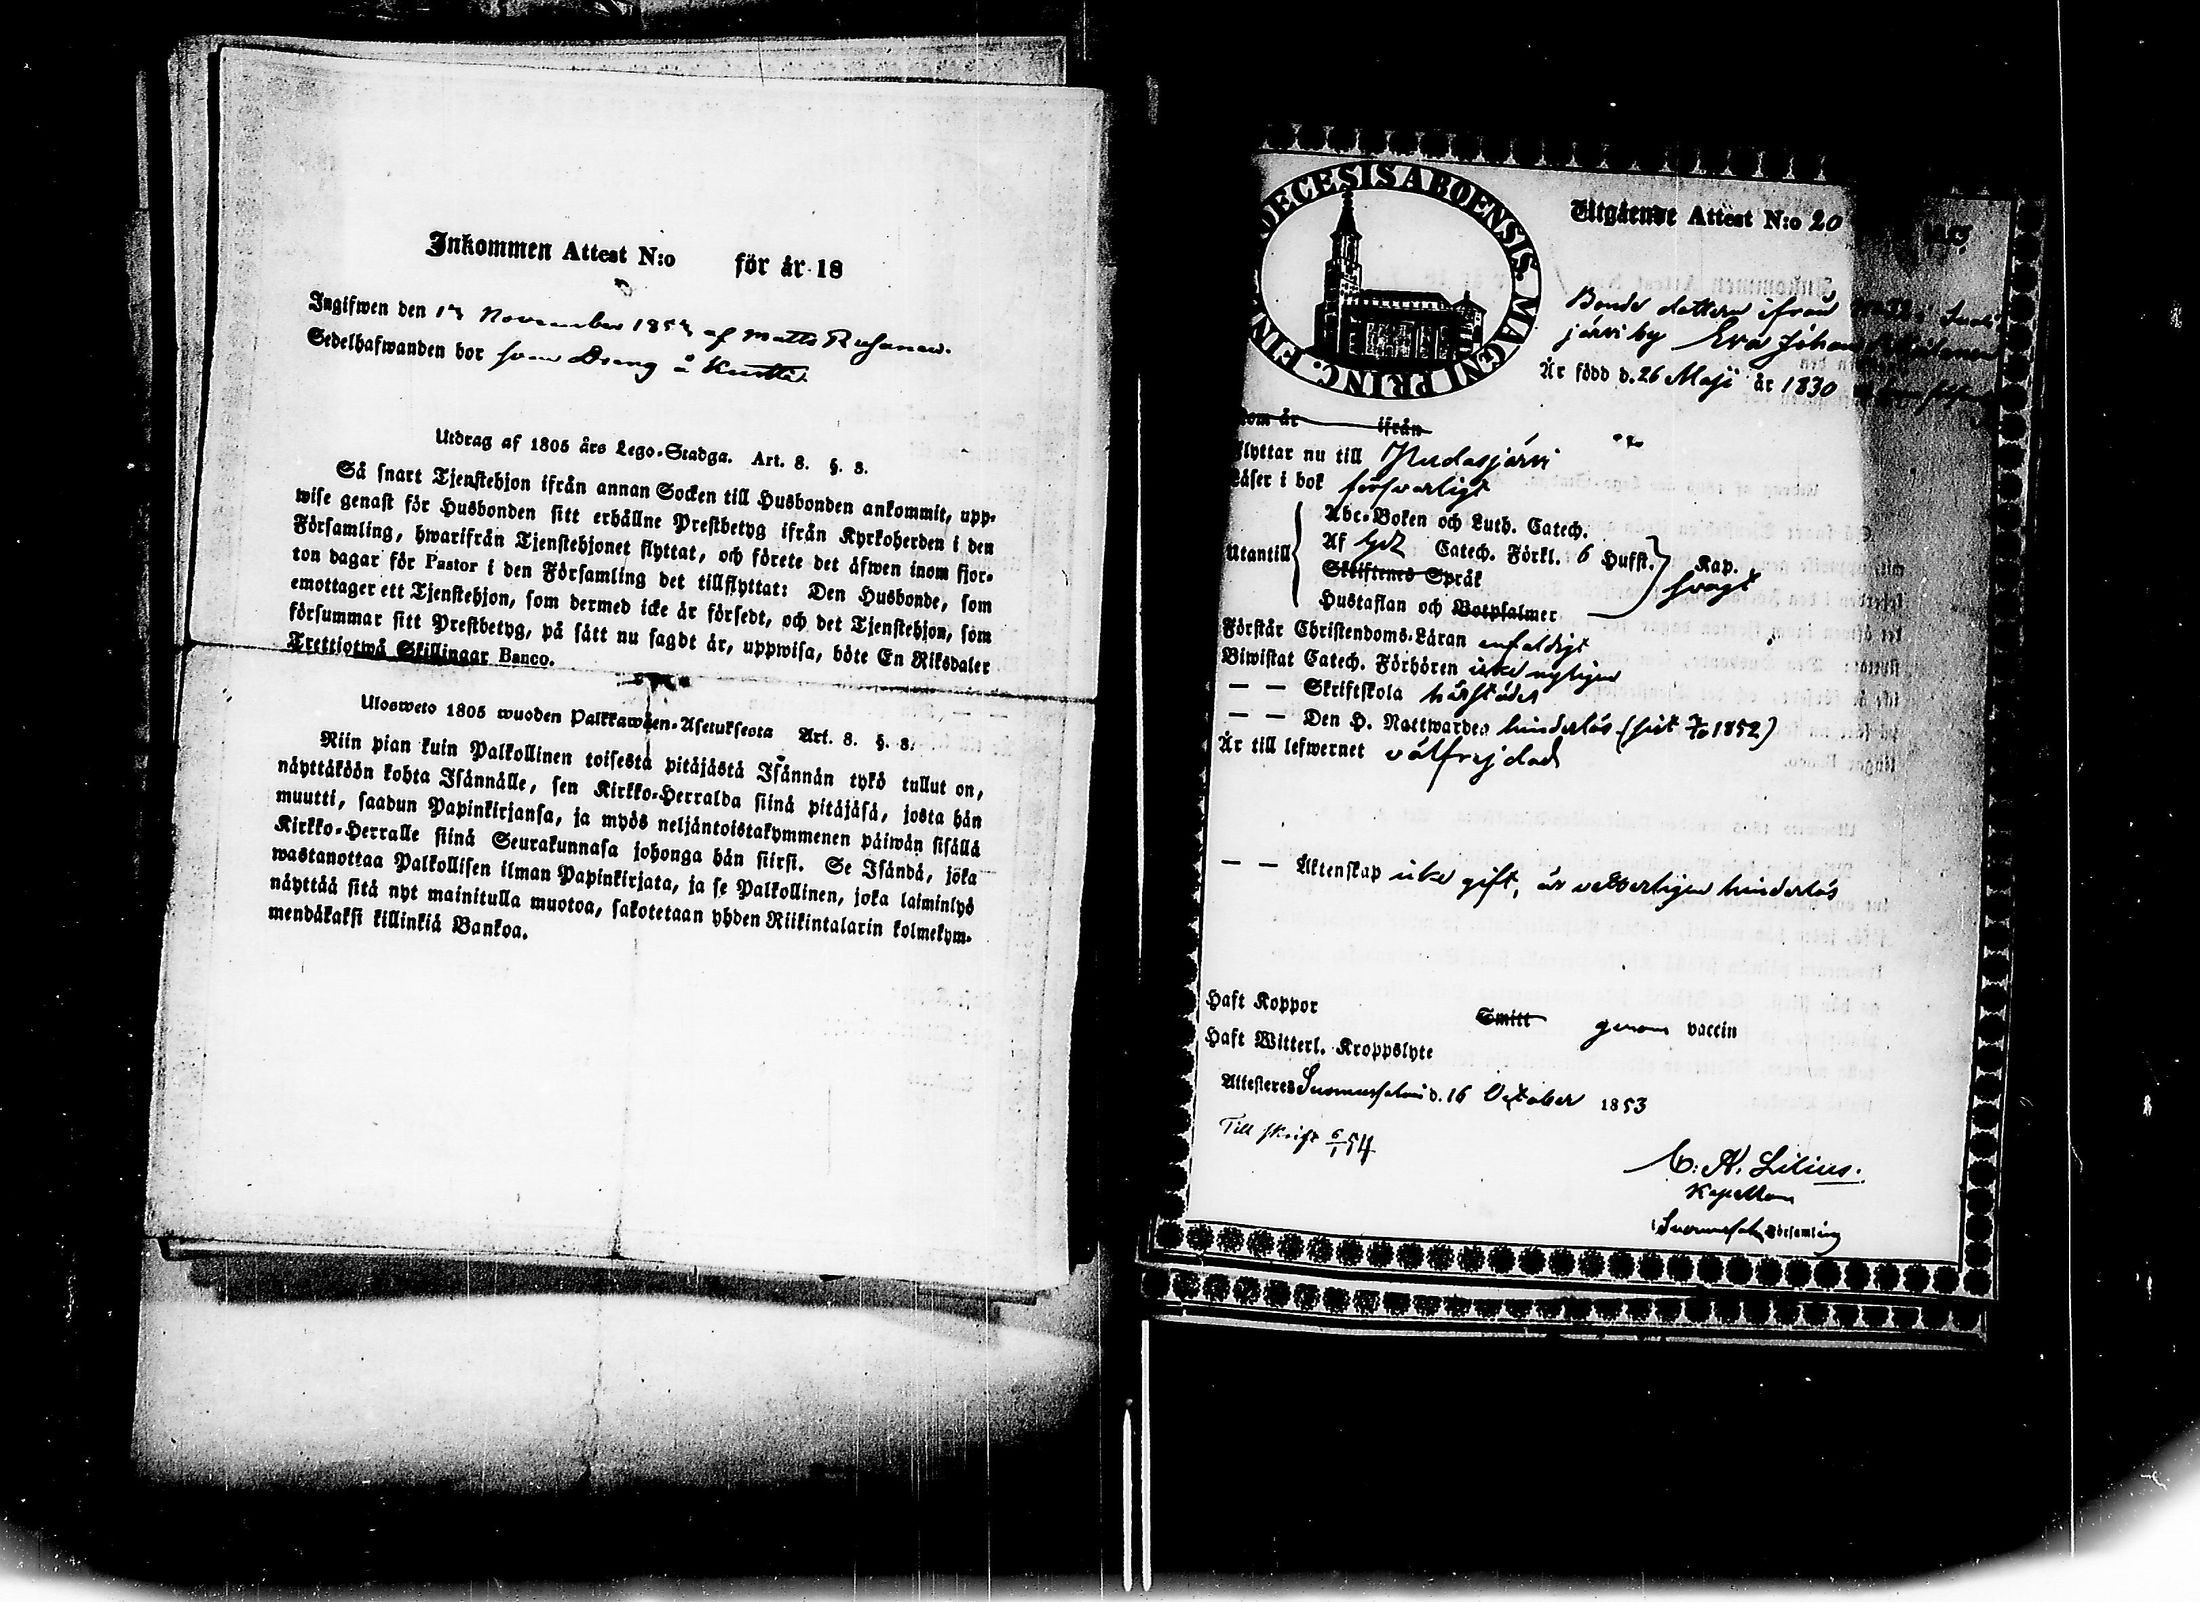 Inkommen Attest N:o för år 18
Ingifwen den 17 November 1853 af Matts
Sedelhafwanden bor som Dreng å
Utdrag af 1805 års Lego-Stadga. Art. 8. §. 8.
Så snart Tjenstehjon ifrån annan Socken till Husbonden ankommit, upp-
wise genast för Husbonden sitt erhållne Prestbetyg ifrån Kyrkoherden i den
Församling, hwarifrån Tjenstehjonet flyttat, och förete det äfwen inom fjor-
ton dagar för Pastor i den Församling det tillflyttat: Den Husbonde, som
emottager ett Tjenstehjon, som dermed icke är försedt, och det Tjenstehjon, som
försummar sitt Prestbetyg, på sätt nu sagdt är, uppwisa, böte En Riksdaler
Trettiotwå Skillingar Banco.
Ulosweto 1805 wuoden Palkkawäen-Asetuksesta Art. 8. §. 8.
Niin pian kuin Palkollinen toisesta pitäjästä Isännän tykö tullut on,
näyttäköön kohta Isännälle, sen Kirkko-Herralda siinä pitäjäsä, josta hän
muutti, saadun Papinkirjansa, ja myös neljäntoistakymmenen päiwän sisällä
Kirkko-Herralle siinä Seurakunnasa johonga hän siirsi. Se Isändä, joka
wastanottaa Palkollisen ilman Papinkirjata, ja se Palkollinen, joka laiminlyö
näyttää sitä nyt mainitulla muotoa, sakotetaan yhden Riikintalarin kolmekym-
mendäkaksi killinkiä Bankoa.
DECESIS ABOENSIS. MAGNI PRINC. FIN
Utgående Attest N:o 20
Bonde dottern ifrån
järvi by Eva Johans
Är född d. 26 Maji år 1830
om år ifrån
flyttar nu till Pudasjärvi
Läser i bok försvarligt
Abc-Boken och Luth. Catech.
Utantill Af Catech. Förkl. 6 Hufst. Kap.
Skriftenes Språk svagt
Hustaflan och Botpsalmer
Förstår Christendoms-Läran enfaldigt
Biwistat Catech. Förhören icke nyligen
— — Skriftskola härstädes
— — Den H. Nattwarden hinderlös (sist 1852)
Är till lefwernet välfrejdad
— — Äktenskap icke gift, är hinderlös
Haft Koppor Smitt genom vaccin
Haft Witterl. Kroppslyte
Attesteres Suomussalmi d. 16 October 1853
Till skrift 6/1 54
C. A. Lilius.
Kapellan
i Suomussalmi Församling